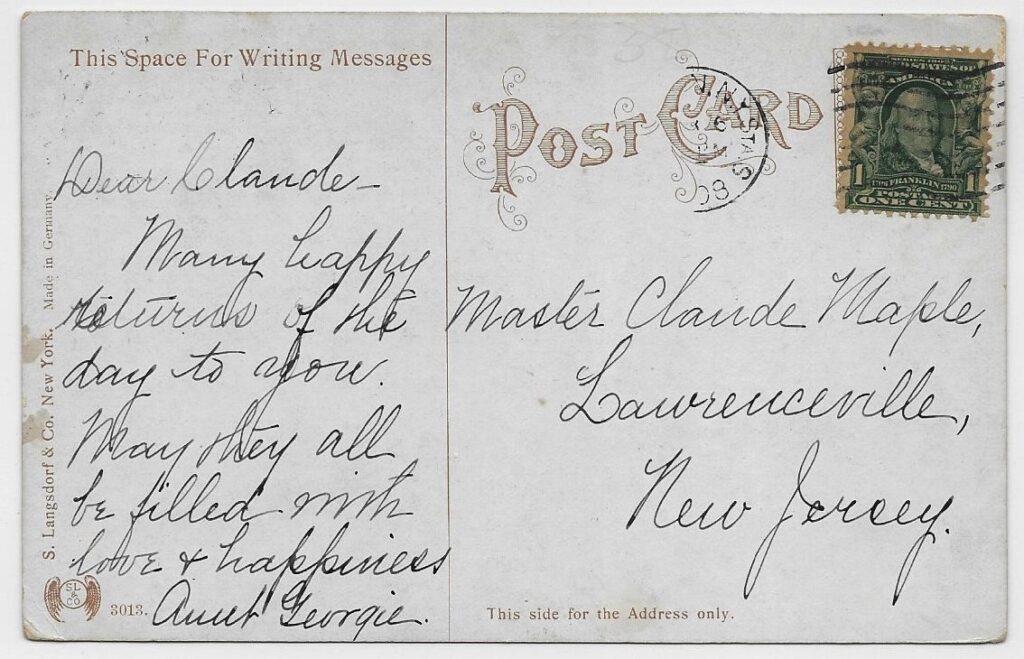 This Space For Writing Messages
Dear Claude –
Many happy
returns of the
day to you.
May they all
be filled with
love & happiness
Aunt Georgie.
S. Langsdorf & Co. New York. Made in Germany
SL & CO
3013.
POST CARD
N.Y. P STA S
3
08
UNITED STATES OF
AMERICA
1 1
FRANKLIN
POSTAGE
ONE CENT
Master Claude Maple,
Lawrenceville,
New Jersey.
This side for the Address only.